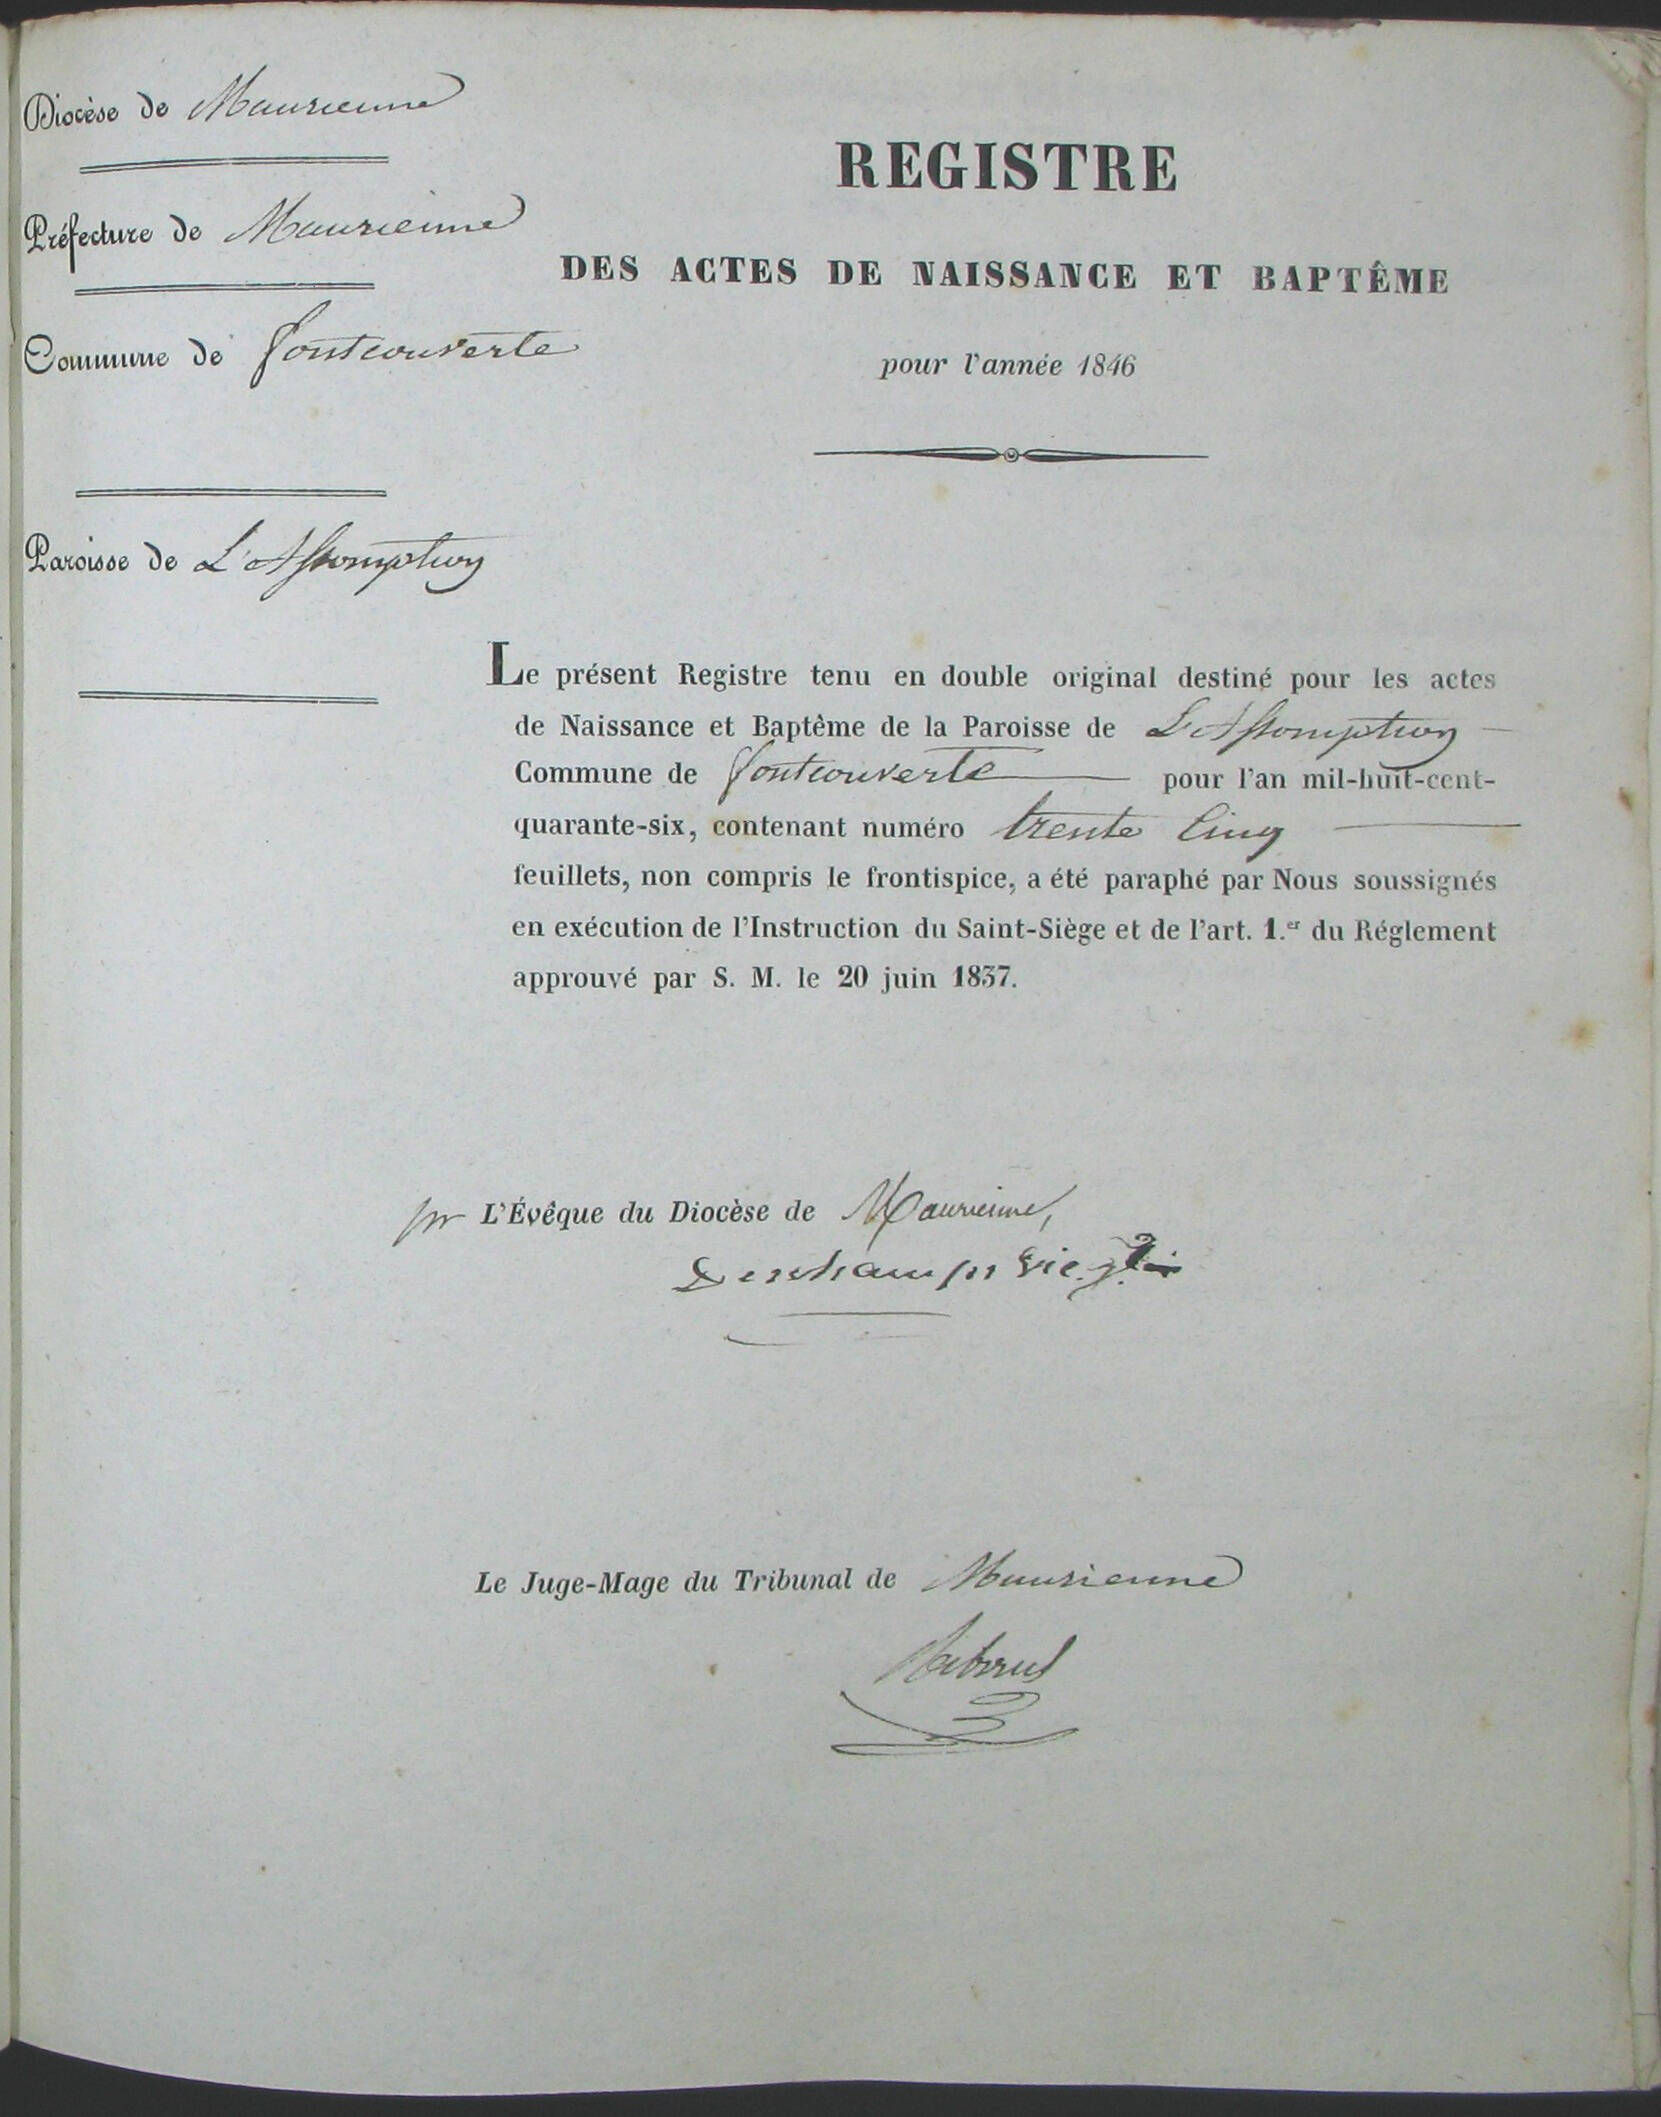 Diocèse de Maurienne
Préfecture de Maurienne
Commune de fontcouverte
Paroisse de L'Assomption
REGISTRE
DES ACTES DE NAISSANCE ET BAPTÊME
pour l'année 1846
Le présent Registre tenu en double original destiné pour les actes
de Naissance et Baptême de la Paroisse de L'Assomption
Commune de fontcouverte pour l'an mil-huit-cent-
quarante-six, contenant numéro trente cinq
feuillets, non compris le frontispice, a été paraphé par Nous soussignés
en exécution de l'Instruction du Saint-Siège et de l'art. 1.er du Réglement
approuvé par S. M. le 20 juin 1837.
pr L'Évêque du Diocèse de Maurienne,
Deschamps vic. g.
Le Juge-Mage du Tribunal de Maurienne